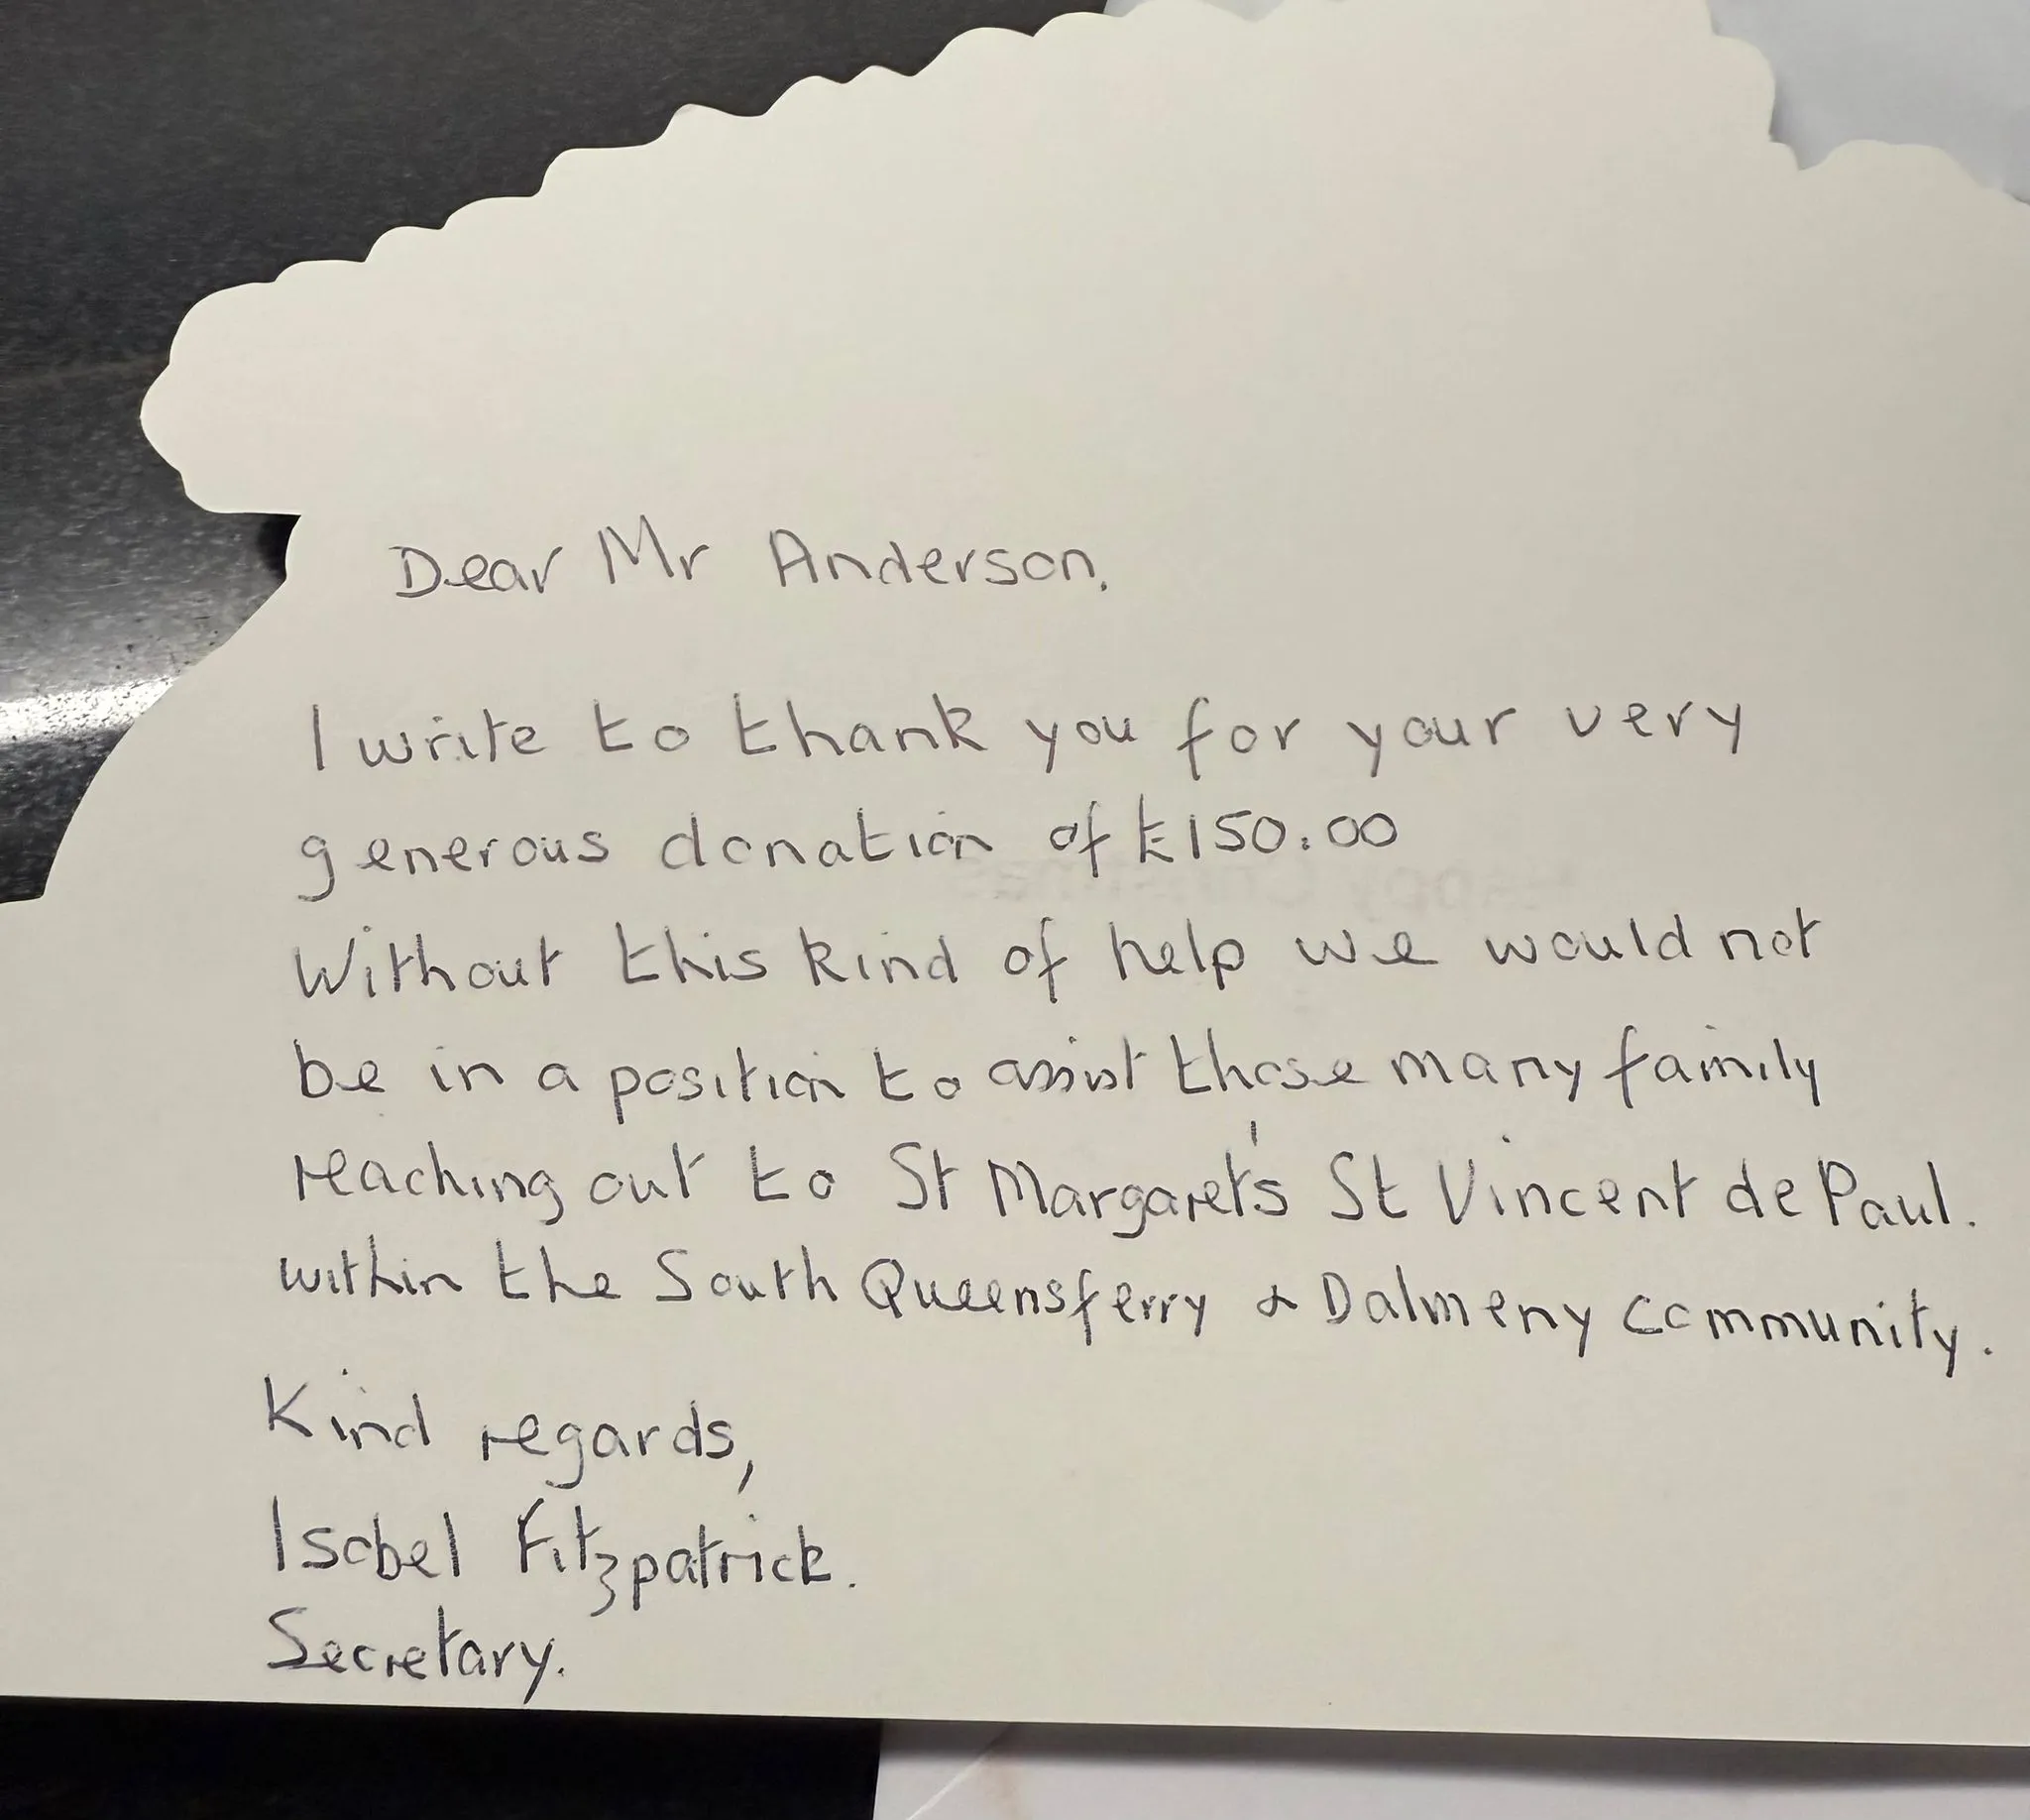 Dear Mr Anderson,
I write to thank you for your very
generous donation of £150.00
Without this kind of help we would not
be in a position to assist those many family
reaching out to St Margaret's St Vincent de Paul.
within the South Queensferry & Dalmeny community.
Kind regards,
Isobel Fitzpatrick.
Secretary.